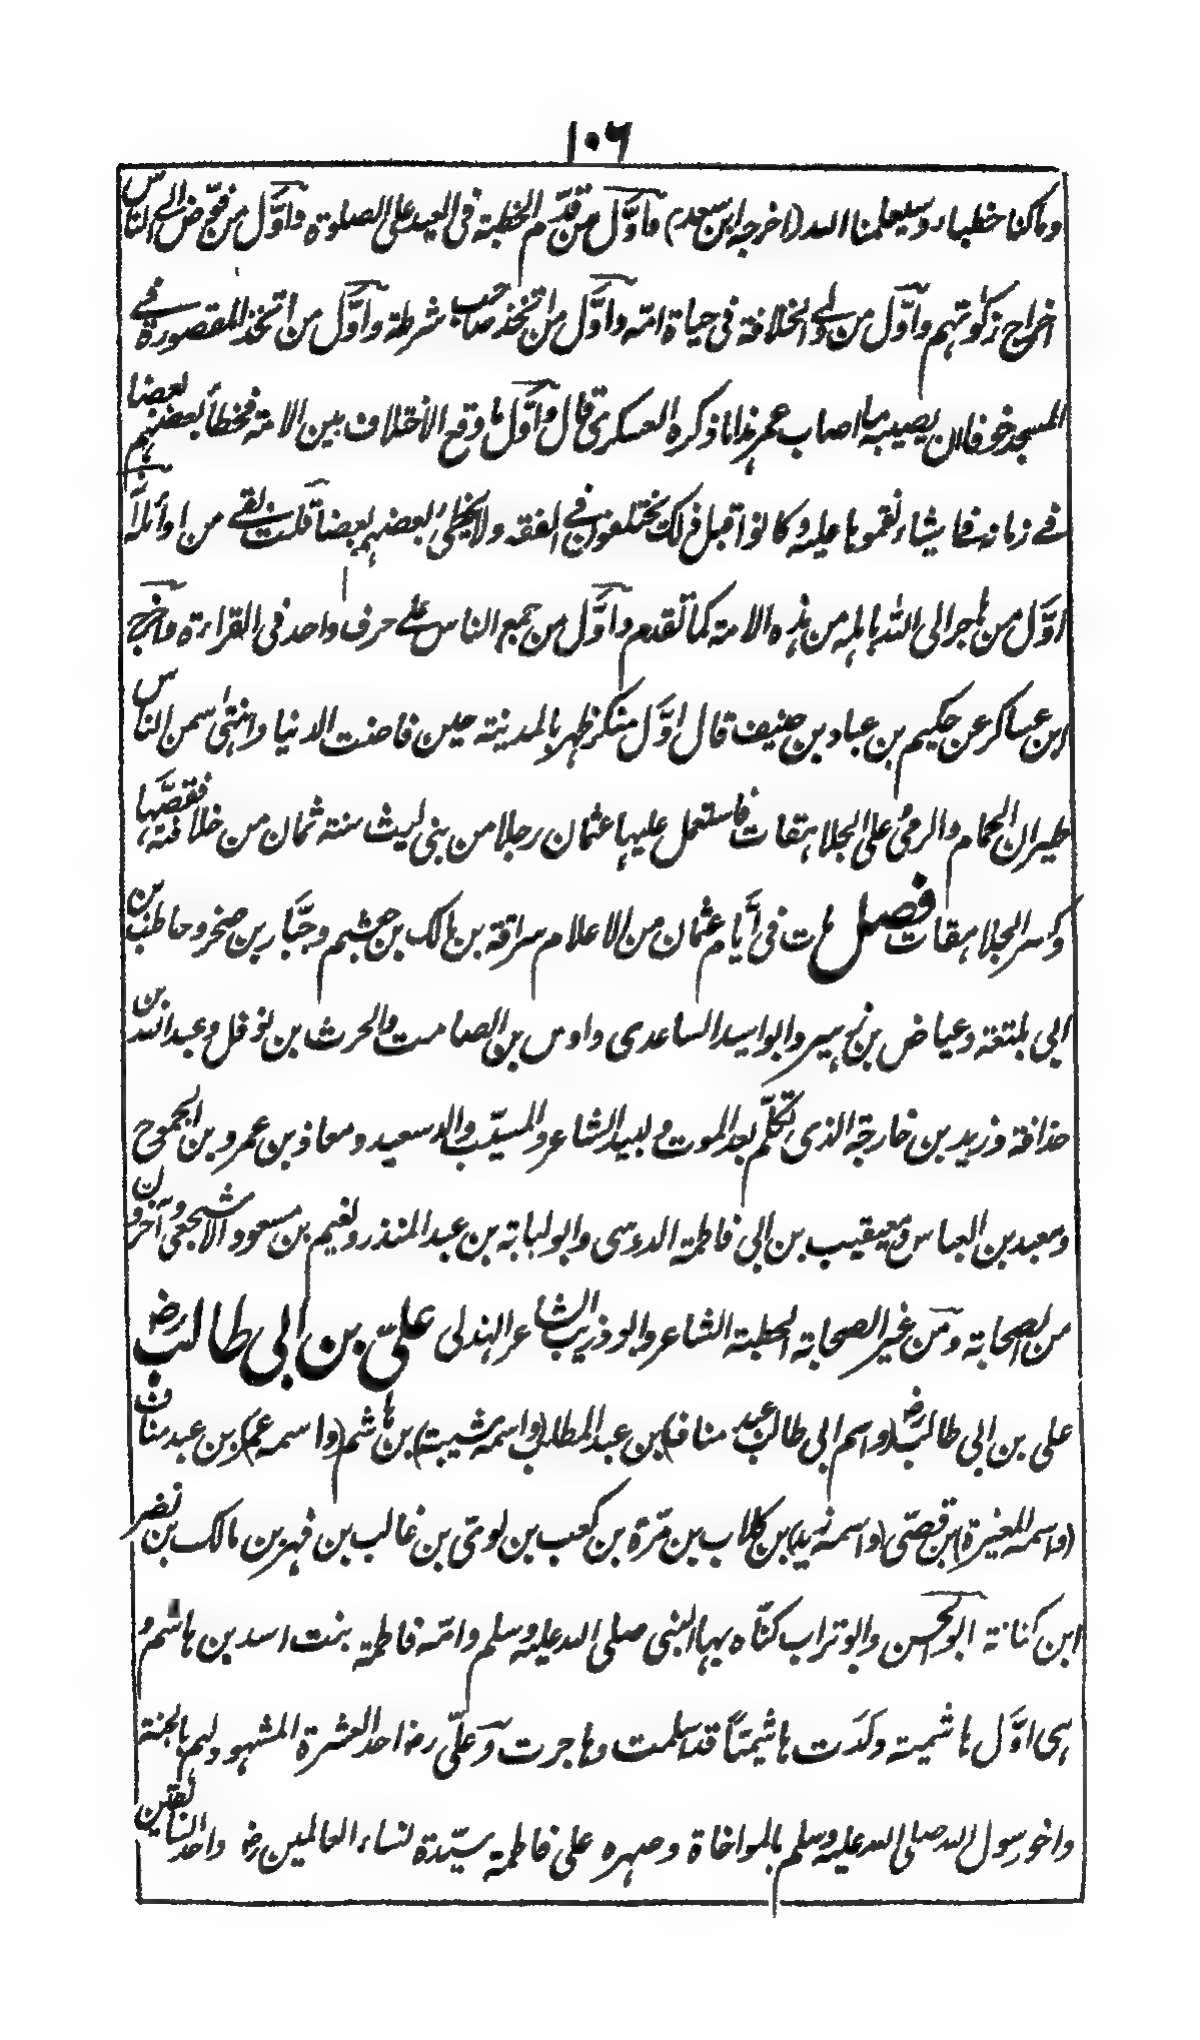 ١٠٦
وما كنا خطباء وسيعلمنا الله (اخرجه ابن سعد) واوّل من قدّم الخطبة فى العيد على الصلوة واوّل من فوّض الى الناس
اخراج زكوتهم واوّل من ولى الخلافة فى حياة امّه واوّل من اتخذ صاحب شرطة واوّل من اتخذ المقصورة فى
المسجد خوفا ان يصيبه ما اصاب عمر هذا ما ذكره العسكرى قال واوّل ما وقع الاختلاف بين الامة فخطأ بعضهم بعضا
فى زمانه فى اشياء نقموها عليه وكانوا قبل ذلك يختلفون فى الفقه ولا يخطئ بعضهم بعضا قلت بقى من اوائله انّه
اوّل من هاجر الى الله باهله من هذه الامة كما تقدم واوّل من جمع الناس على حرف واحد فى القراءة واخرج
ابن عساكر عن حكيم بن عباد بن حنيف قال اوّل منكر ظهر بالمدينة حين فاضت الدنيا وانتهى سمن الناس
طيران الحمام والرمى على الجلاهقات فاستعمل عليها عثمان رجلا من بنى ليث سنة ثمان من خلافته فقصّها
وكسر الجلاهقات فصل مات فى أيّام عثمان من الاعلام سراقة بن مالك بن جشم وجبّار بن صخر وحاطب بن
ابى بلتعة وعياض بن زهير وابو اسيد الساعدى واوس بن الصامت والحرث بن نوفل وعبد الله بن
حذافة وزيد بن خارجة الذى تكلّم بعد الموت ولبيد الشاعر والمسيّب والد سعيد ومعاذ بن عمرو بن الجموح
ومعبد بن العباس ومعيقيب بن ابى فاطمة الدوسى وابو لبابة بن عبد المنذر ونعيم بن مسعود الاشجعى وآخرون
من الصحابة ومن غير الصحابة الحطية الشاعر وابو ذويب الشاعر الهذلى علىّ بن ابى طالب رضـ
على بن ابى طالب رضـ (واسم ابى طالب عبد مناف) بن عبد المطلب (واسمه شيبة) بن هاشم (واسمه عمرو) بن عبد مناف
(واسمه المغيرة) بن قصىّ (واسمه زيد) بن كلاب بن مرّة بن كعب بن لوىّ بن غالب بن فهر بن مالك بن نضر
ابن كنانة ابو الحسن وابو تراب كنّاه بها النبى صلى الله عليه وسلم وامّه فاطمة بنت اسد بن هاشم و
هى اوّل هاشمية ولدَت هاشميّاً قد اسلمت وهاجرت وعلىّ رضـ احد العشرة المشهود لهم بالجنة
واخو رسول الله صلى الله عليه وسلم بالمواخاة وصهره على فاطمة سيّدة نساء العالمين رضـ واحد السابقين